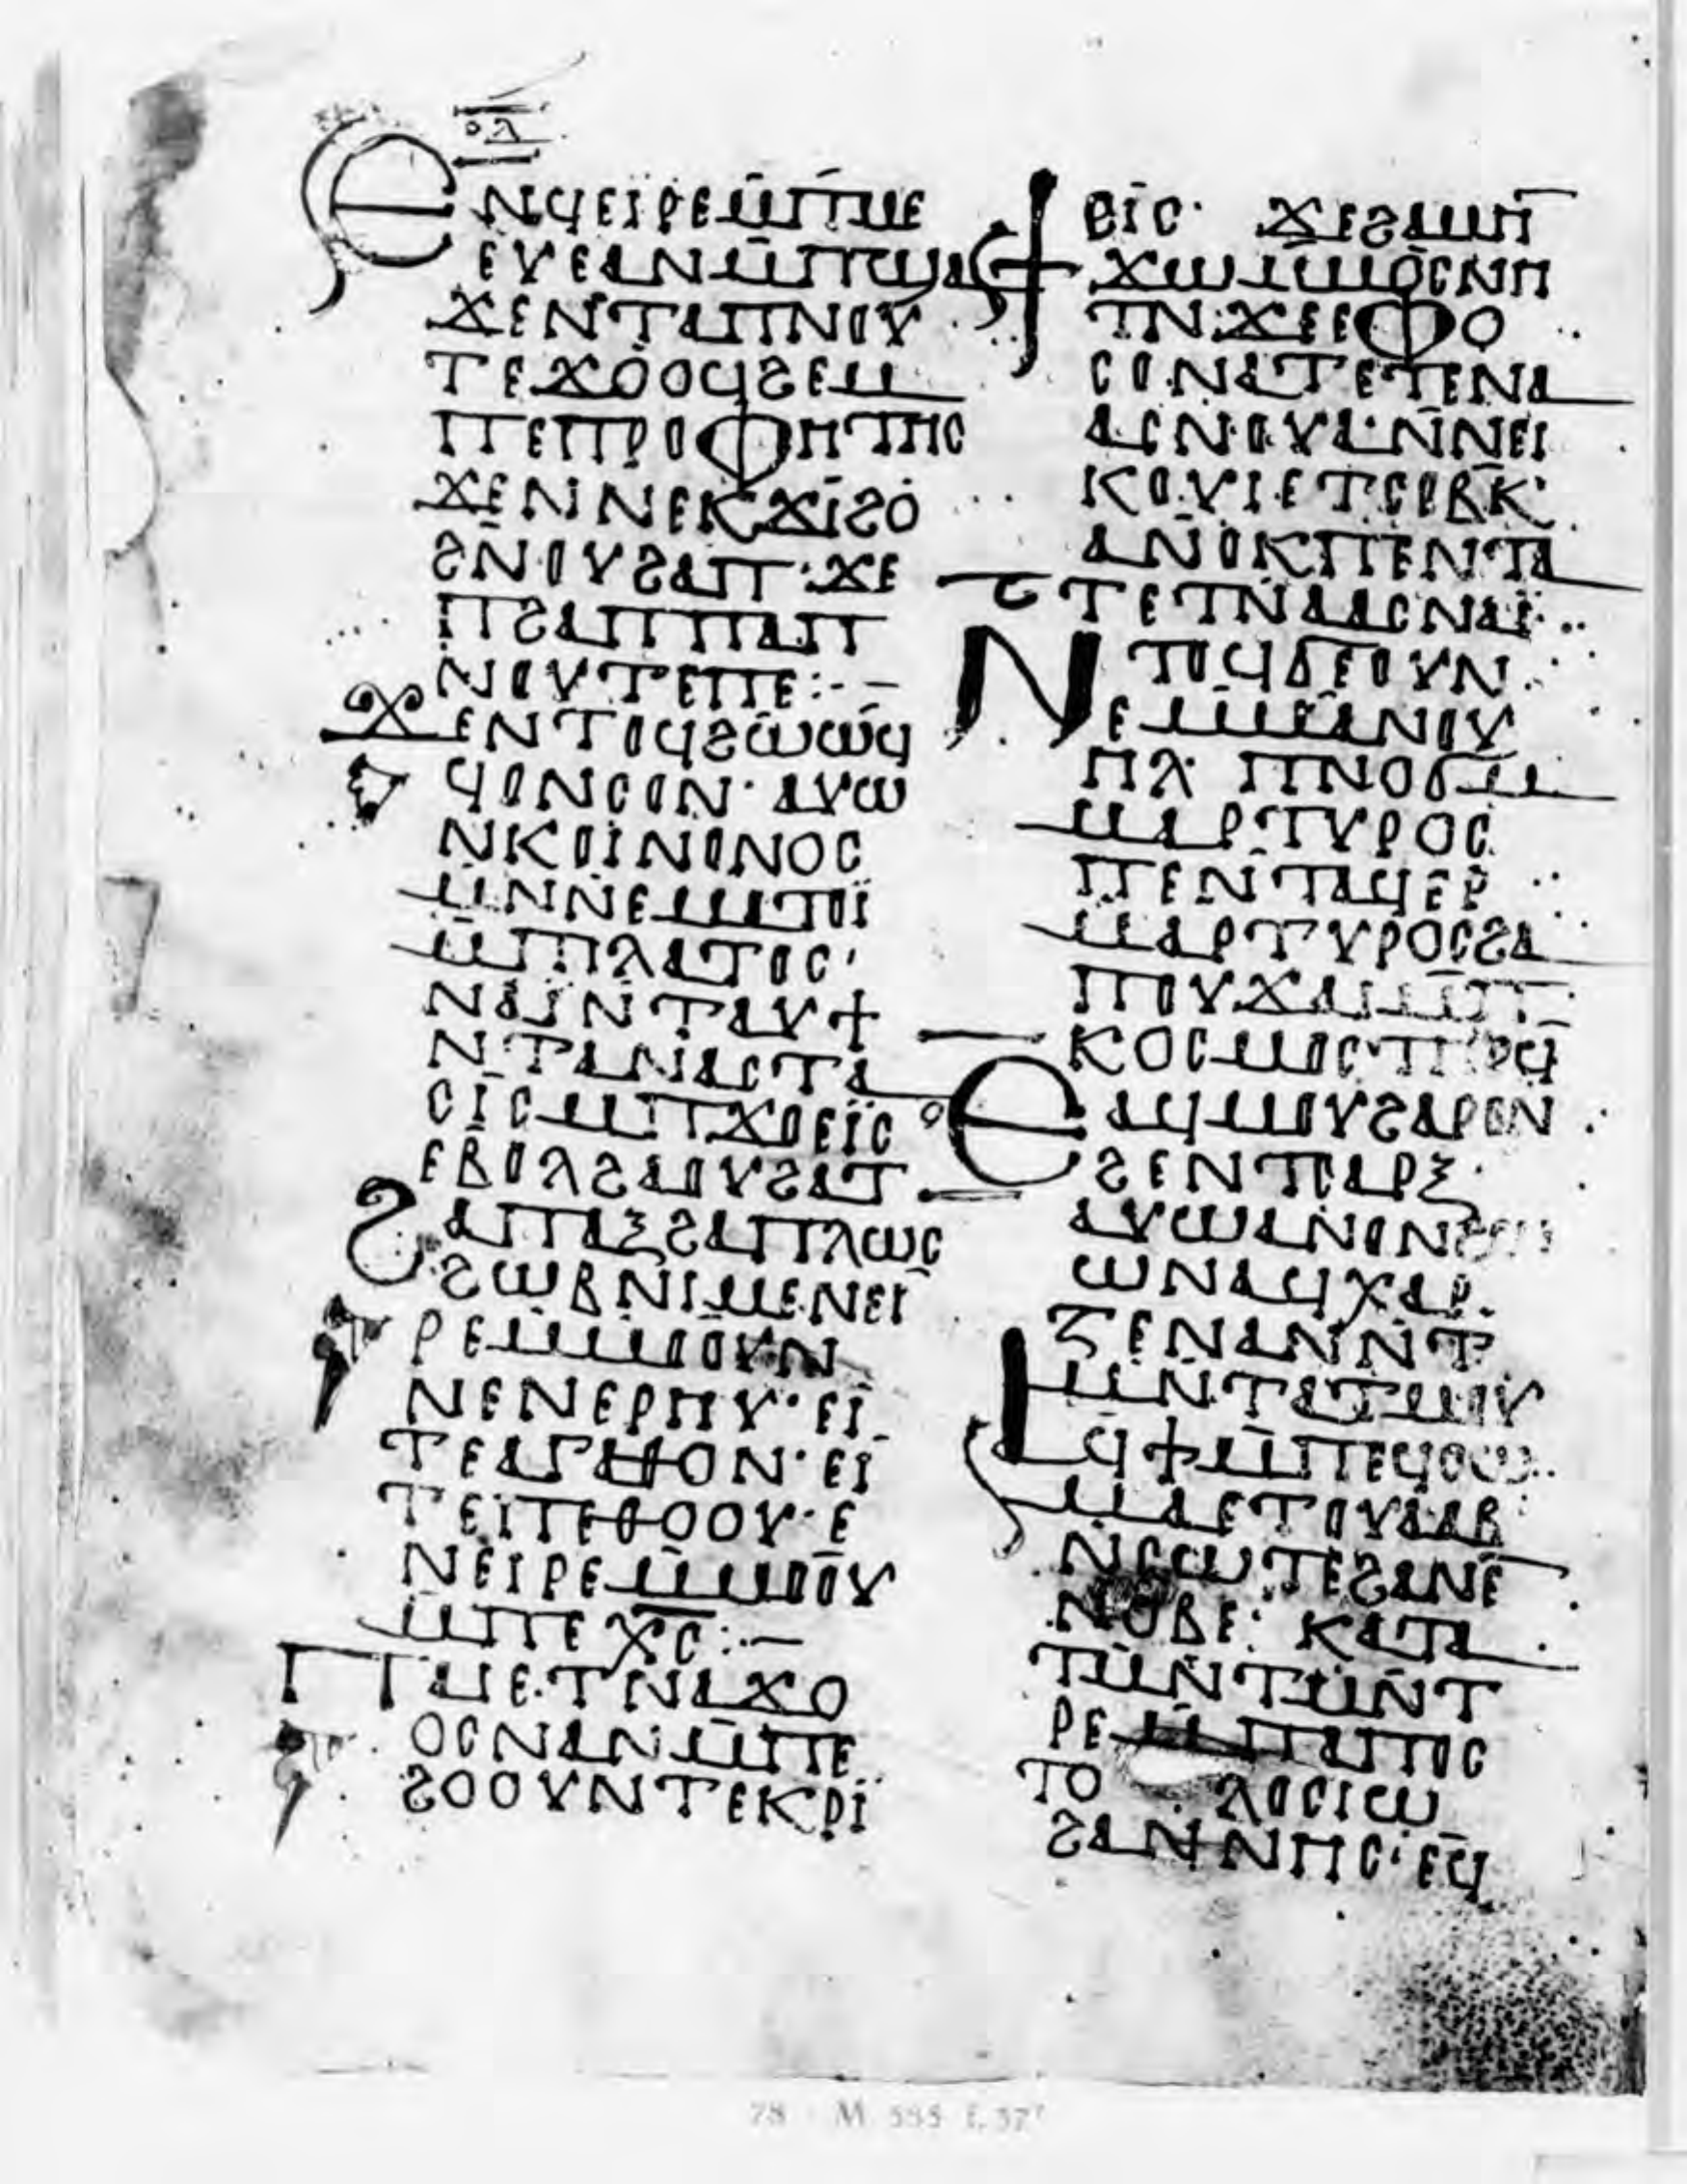 ⲟⲗ
ⲉⲛϥⲉⲓⲣⲉⲙ̄ⲡⲙⲉ
ⲉⲩⲉⲁⲛⲙ̄ⲡϣⲁ
ϫⲉⲛⲧⲁⲡⲛⲟⲩ
ⲧⲉϫⲟⲟϥϩⲉⲙ
ⲡⲉⲡⲣⲟⲫⲏⲧⲏⲥ
ϫⲉⲛⲛⲉⲕϫⲓϩⲟ
ϩⲛ̄ⲟⲩϩⲁⲡ· ϫⲉ
ⲡϩⲁⲡⲡⲁⲡ
ⲛⲟⲩⲧⲉⲡⲉ:--
ϫⲉⲛⲧⲟϥϩⲱⲱϥ
ϥⲟⲛⲥⲟⲛ· ⲁⲩⲱ
ⲛⲕⲟⲓⲛⲱⲛⲟⲥ
ⲙ̄ⲛⲛⲉⲙⲁⲧⲟⲓ̈
ⲙ̄ⲡⲓⲗⲁⲧⲟⲥ·
ⲛⲁⲓ̈ⲛ̄ⲧⲁⲩϯ
ⲛⲧⲁⲛⲁⲥⲧⲁ
ⲥⲓⲥⲙⲡϫⲟⲉⲓⲥ
ⲉⲃⲟⲗϩⲁⲟⲩϩⲁⲧ
ϩⲁⲡⲁⲝϩⲁⲡⲗⲱⲥ
ϩⲱⲃⲛⲓⲙⲉⲛⲉⲓ
ⲣⲉⲙ̄ⲙⲟⲟⲩⲛ
ⲛⲉⲛⲉⲣⲏⲩ· ⲉⲓ
ⲧⲉⲁⲅⲁⲑⲟⲛ· ⲉⲓ
ⲧⲉⲡⲉⲑⲟⲟⲩ· ⲉ
ⲛⲉⲓⲣⲉⲙ̄ⲙⲟⲟⲩ
ⲙ̄ⲡⲉⲭ̄ⲥ̄:·—
ⲡⲁⲓⲉⲧⲛⲁϫⲟ
ⲟⲥⲛⲁⲛⲙ̄ⲡⲉ
ϩⲟⲟⲩⲛⲧⲉⲕⲣⲓ
ⲥⲓⲥ· ϫⲉϩⲁⲙⲏ
ϯϫⲱⲙ̄ⲙⲟⲥⲛⲏ
ⲧⲛ·ϫⲉⲉⲫⲟ
ⲥⲟⲛⲁⲧⲉⲧⲉⲛⲁ
ⲁⲥⲛⲟⲩⲁ·ⲛ̄ⲛⲉⲓ
ⲕⲟⲩⲓ·ⲉⲧⲥⲟⲃⲕ
ⲁⲛⲟⲕⲡⲉⲛⲧⲁ
ⲧⲉⲧⲛⲁⲁⲥⲛⲁⲓ̈:..
ⲛⲧⲟϥϭⲉⲟⲩⲛ
ⲉⲙⲙⲁⲛⲟⲩ
ⲏⲗ ⲡⲛⲟϭⲙ̄
ⲙⲁⲣⲧⲩⲣⲟⲥ
ⲡⲉⲛⲧⲁϥⲉⲣ
ⲙⲁⲣⲧⲩⲣⲟⲥϩⲁ
ⲡⲟⲩϫⲁⲓⲙ̄ⲡ
ⲕⲟⲥⲙⲟⲥⲧⲏⲣϥ̄
ⲉⲁϥⲙⲟⲩϩⲁⲣⲟⲛ
ϩⲉⲛⲧⲥⲁⲣⲝ·
ⲁⲩⲱⲁⲛⲟⲛ
ⲱⲛⲁϥⲭⲁⲣ
ⲍⲉⲛⲁⲛⲛ̄ⲧ
ⲙⲛ̄ⲧⲁⲧⲙⲟⲩ
ⲁϥϯⲙ̄ⲡⲉϥⲥⲱ
ⲙⲁⲉⲧⲟⲩⲁⲁⲃ
ⲛ̄ⲥⲱⲧⲉϩⲁⲛⲉ
ⲛⲟⲃⲉ: ⲕⲁⲧⲁ
ⲧⲙⲛ̄ⲧⲙⲛ̄ⲧ
ⲣⲉⲙ̄ⲡⲁⲡⲟⲥ
ⲧⲟⲗⲟⲥⲓⲱ
ϩⲁⲛⲛⲏⲥ· ⲉϥ
78 M 595 f. 37ʳ